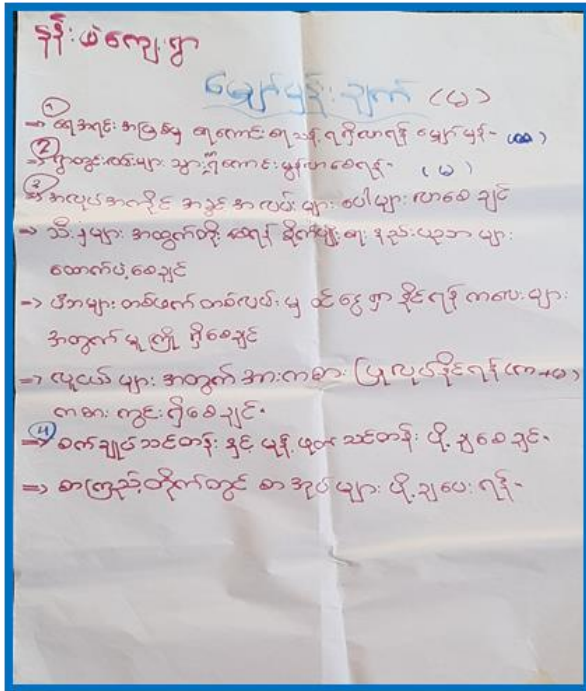 နုန်းဖဲကျေးရွာ
မျှော်မှန်းချက် (မ)
① ⇒ ရေအရင်းအမြစ်မှ ရေကောင်းရေသန့် ရရှိလာရန် မျှော်မှန်း-
② ⇒ ရွာတွင်းလမ်းများ သွား၍ကောင်းမွန်လာစေရန်- (မ)
③ ⇒ အလုပ်အကိုင် အခွင့်အလမ်းများ ပေါများလာစေချင်
⇒ သီးနှံများ အထွက်တိုးစေရန် စိုက်ပျိုးရေးနည်းပညာများ
ထောက်ပံ့စေချင်
⇒ မိဘများ တစ်ဖက်တစ်လမ်းမှ ဝင်ငွေရှာနိုင်ရန် ကလေးများ
အတွက် မူကြို ရှိစေချင်
⇒ လူငယ်များ အတွက် အားကစား ပြုလုပ်နိုင်ရန် (ကာ+မ)
ကစားကွင်းရှိစေချင်-
④ ⇒ စက်ချုပ်သင်တန်း နှင့် မုန့်ဖုတ်သင်တန်း ပို့ချစေချင်-
⇒ စာကြည့်တိုက်တွင် စာအုပ်များ ပို့ချပေးရန်-